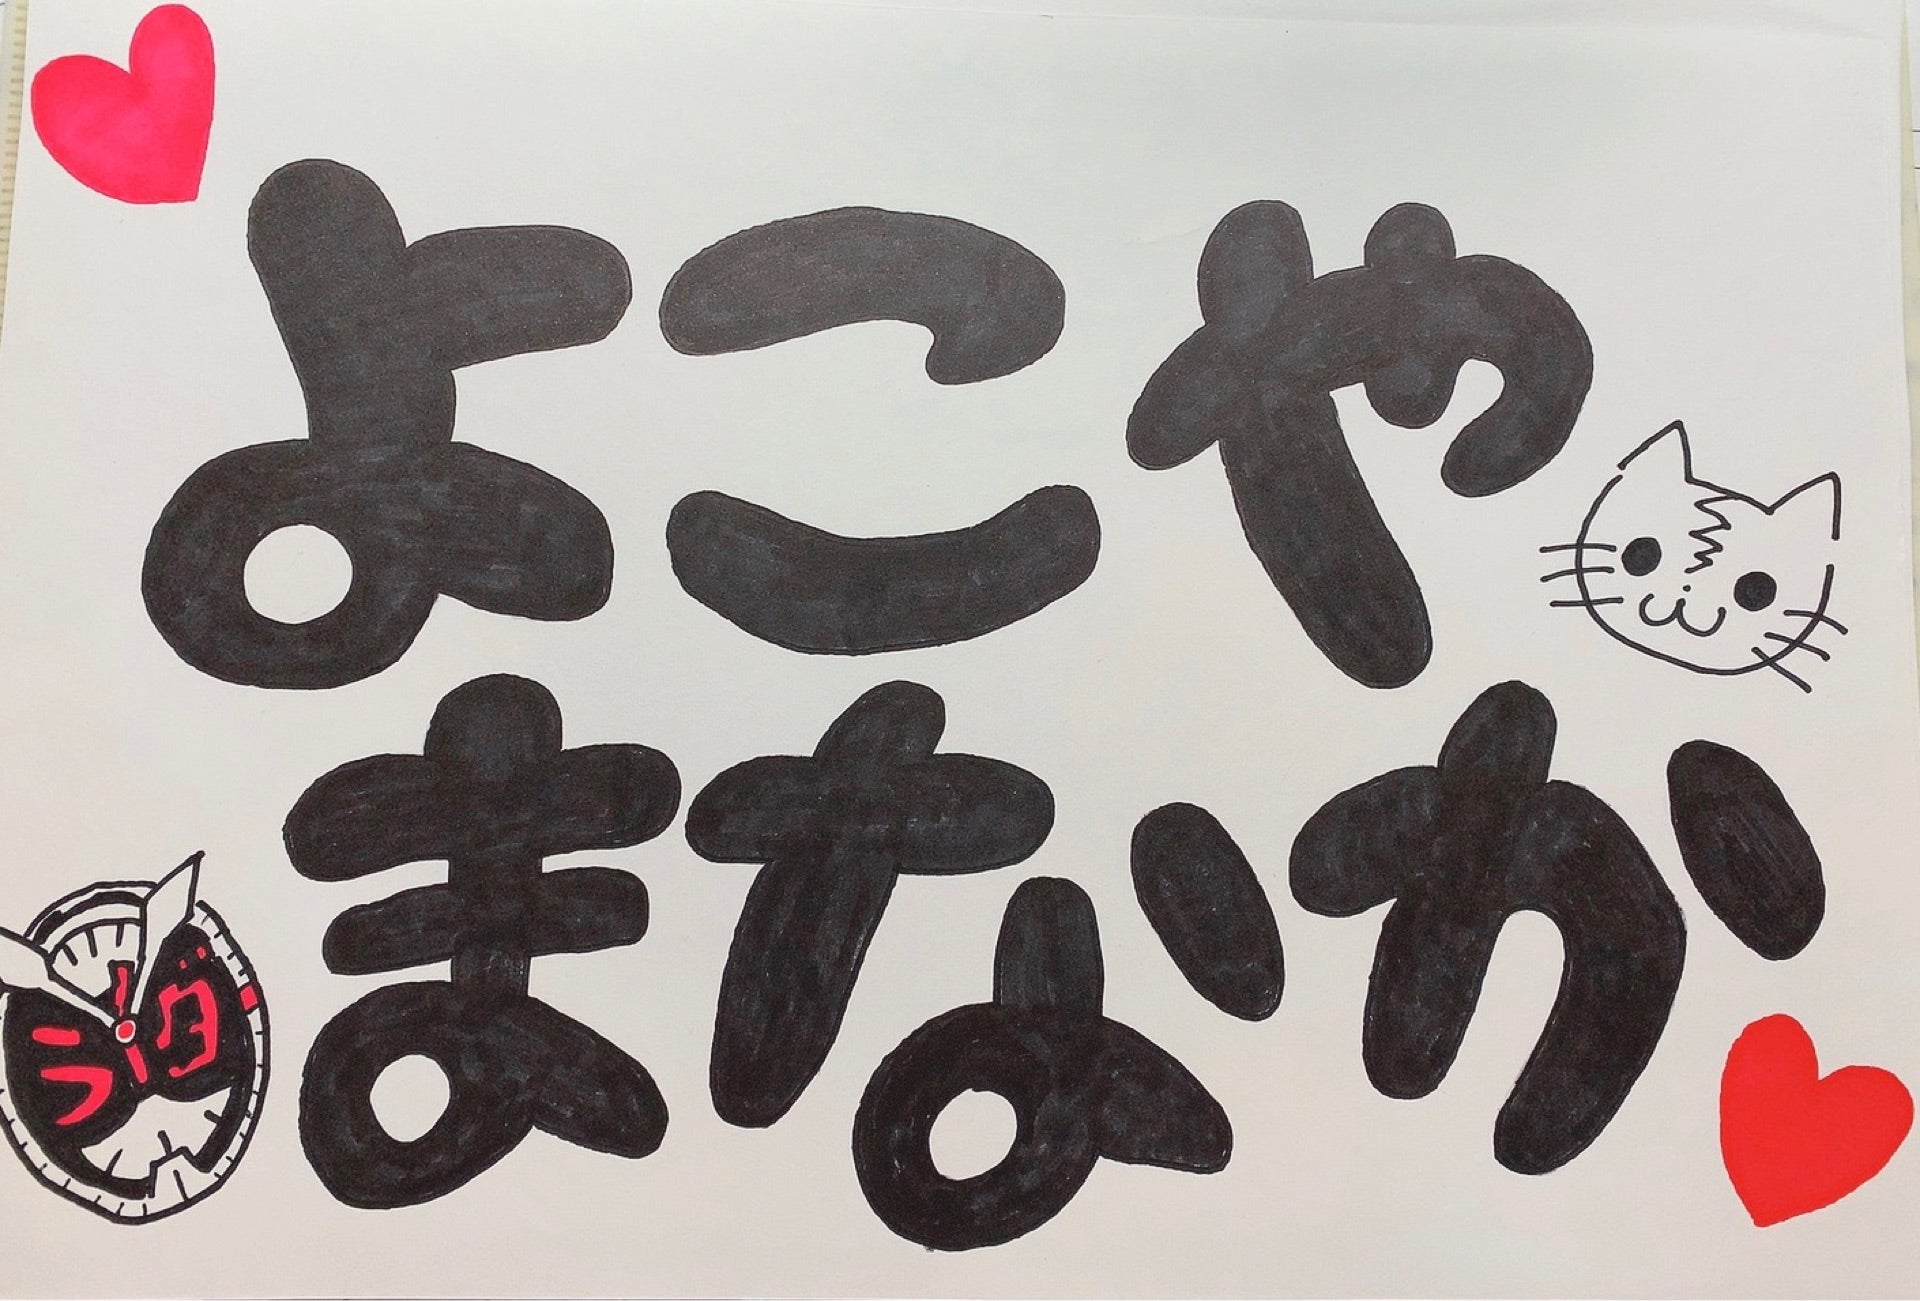 よこや
まなか
ライダー